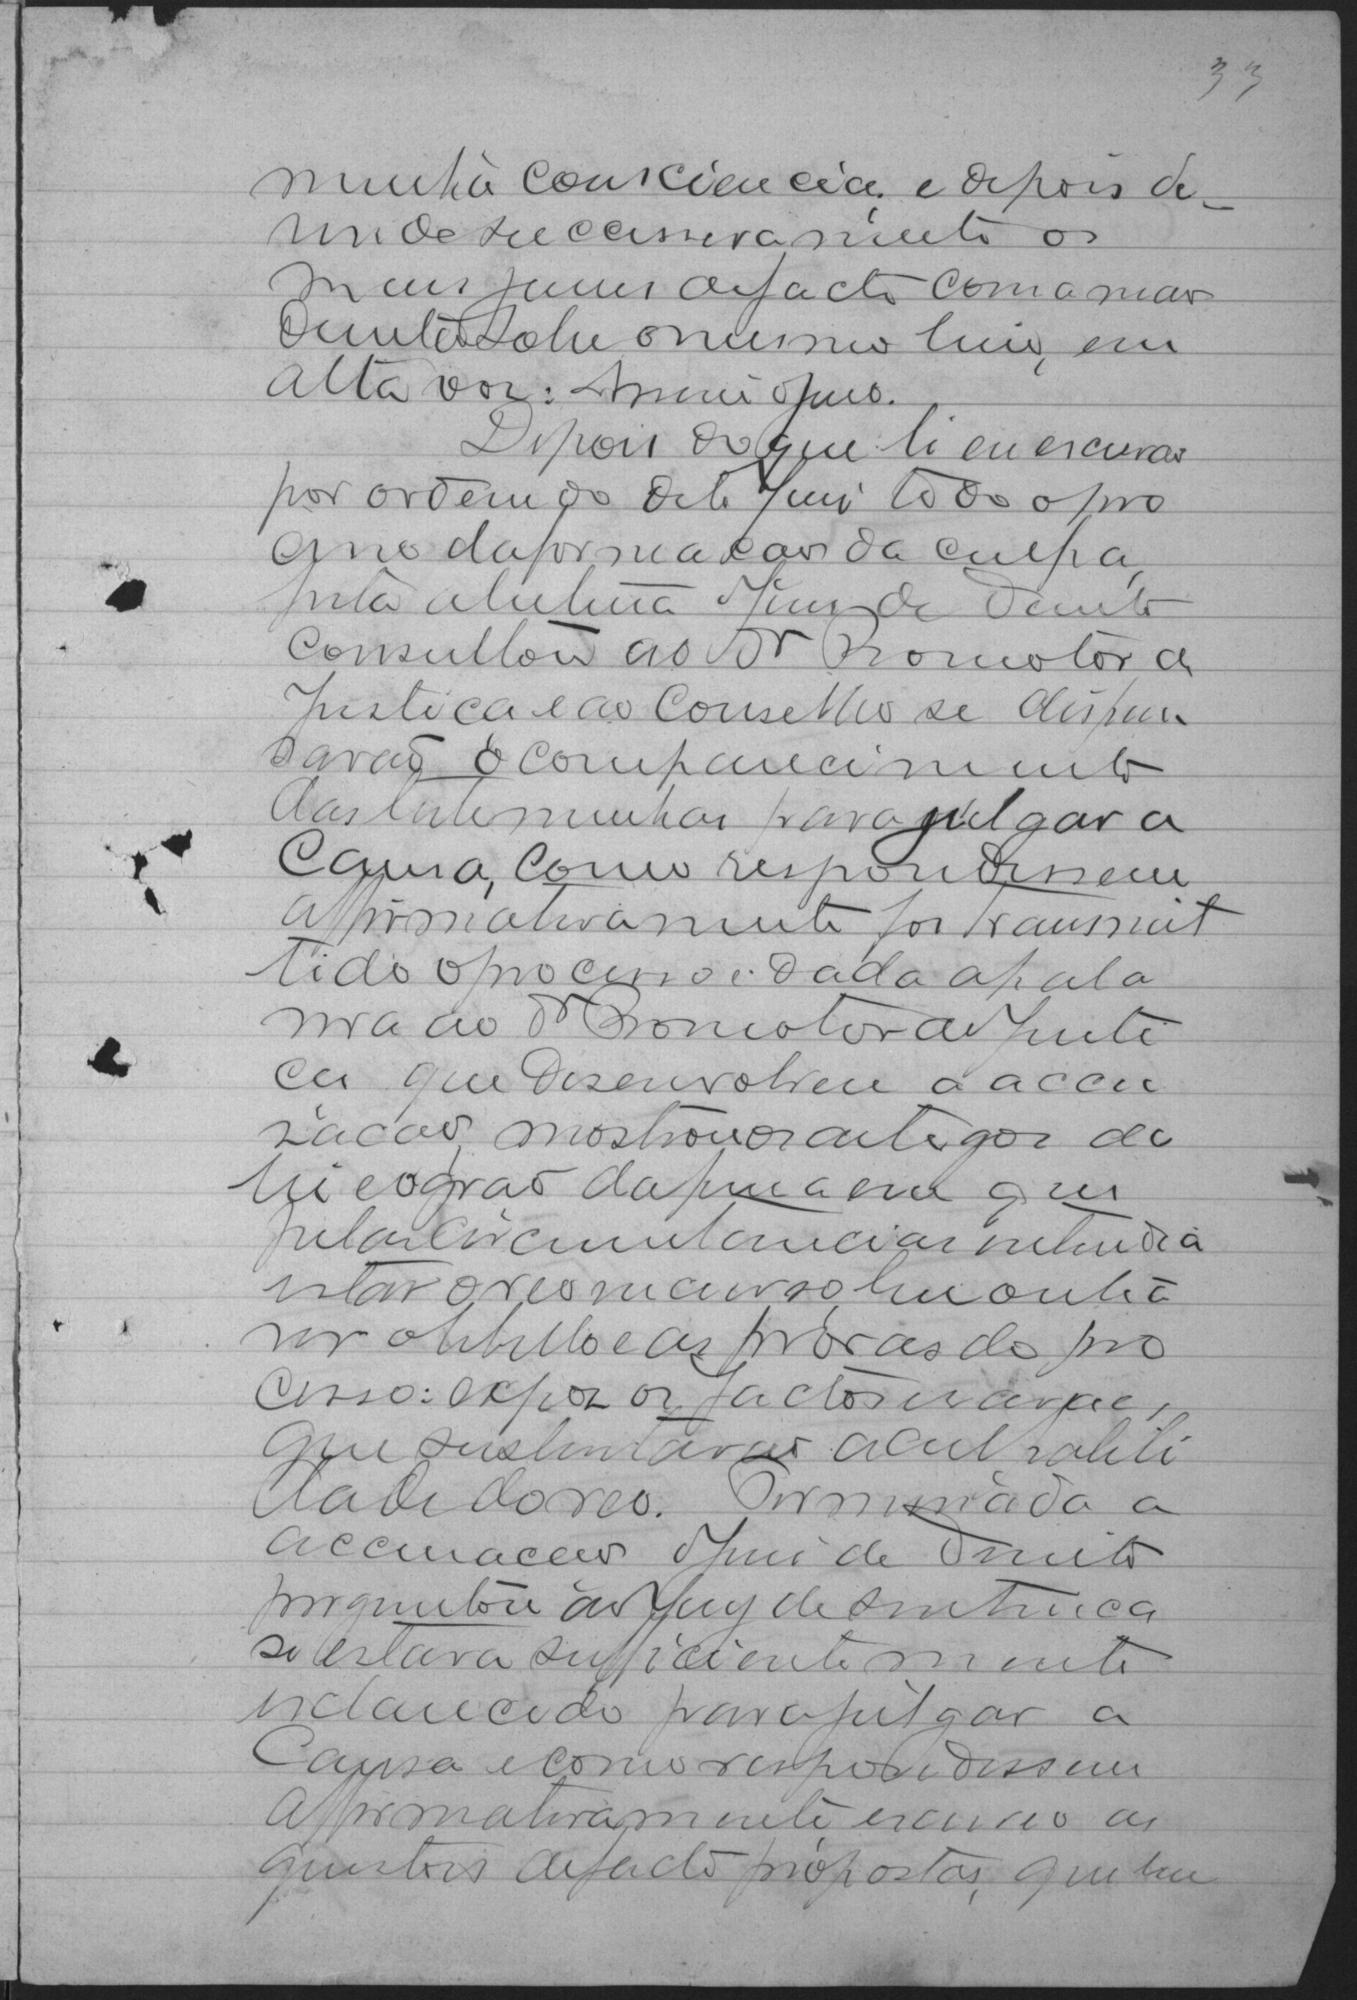 33
minha consciencia, e depois de
um de successivamente os
mais juizes de facto com a mão
direita sobre o mesmo livro, em
alta voz: Assim o juro.
Depois do que li eu escrivão
por ordem do dito Juiz todo o pro
cesso da formação da culpa,
feita a leitura o Juiz de Direito
consultou ao Dr Promotor de
Justiça e ao Conselho se dispen
savão o comparecimento
das testemunhas para julgar a
Causa, como respondessem
affirmativamente foi transmit
tido o processo e dada a pala
vra ao Dr Promotor de Justi
ca que desenvolveu a accu
sacão, mostrou os artigos da
lei e o grao da pena em que
pelas circumstancias entendia
estar o reo incurso, leu outra
vez o libello e as provas do pro
cesso: expoz os factos e rasões,
que sustentavão a culpabili
dade do reo. Terminada a
accusacão o Juiz de Direito
perguntou ao Jury de Sentenca
se estava sufficientemente
esclarecido para julgar a
Causa e como respondessem
affirmativamente escreveo as
questões de facto propostas, que leu